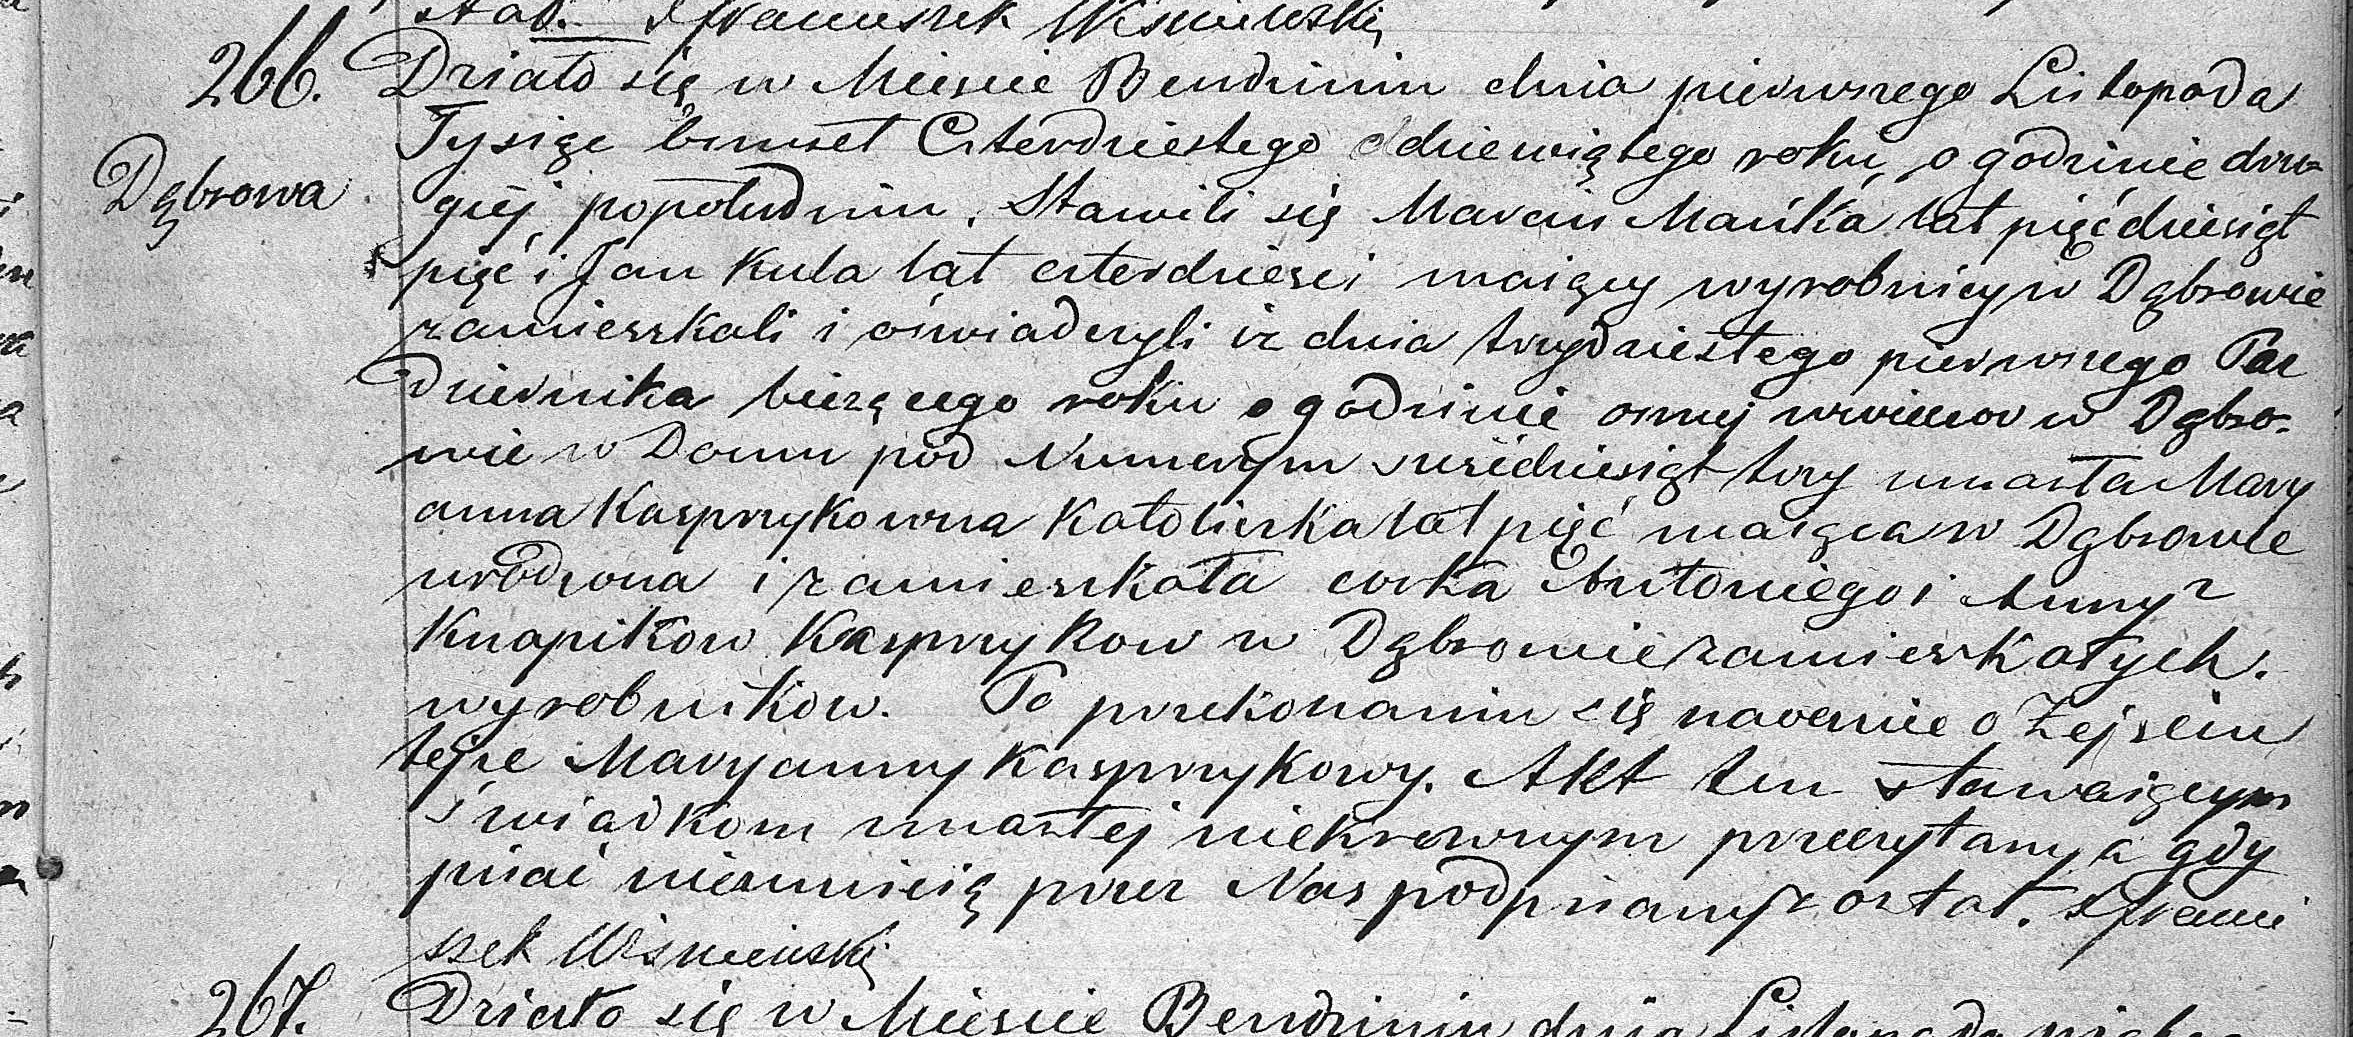 stał. X Franciszek Wiśniewski
266. Działo się w Miescie Bendzinie dnia pierwszego Listopada
Tysiąc ośmset Czterdziestego dziewiątego roku, o godzinie dru-
Dąbrowa
giej popołudniu. Stawili się Marcin Mańka lat pięćdziesiąt
pięć i Jan Kula lat czterdziesci maiący wyrobnicy w Dąbrowie
zamieszkali i oświadczyli iz dnia trzydziestego pierwszego Paz
dziernika bieżącego roku o godzinie osmej wwieczor w Dąbro-
wie w Domu pod Numerym sześćdziesiąt trzy umarła Mary
anna Kasprzykowna Katoliczka lat pięć maiąca w Dąbrowie
urodzona i zamieszkała corka Antoniego i Anny z
Knapikow Kasprzykow w Dąbrowie zamieszkałych.
wyrobnikow. Po przekonaniu się naocznie o Zejściu
tejze Maryanny Kasprzykowy. Akt ten stawaiącym
świadkom zmarłej niekrewnym przeczytany a gdy
pisać nieumieią przez Nas podpisany został. X Franci
szek Wiśniewski
267. Działo się w Miescie Bendzinie dnia Listopada